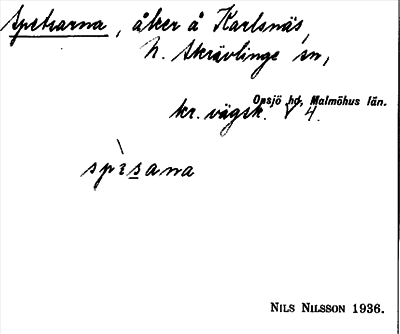 Spetsarna, åker å Karlsnäs,
N. Skrävlinge sn,
Onsjö hd, Malmöhus län.
kr. vägsk. V 4.
spèsana
NILS NILSSON 1936.